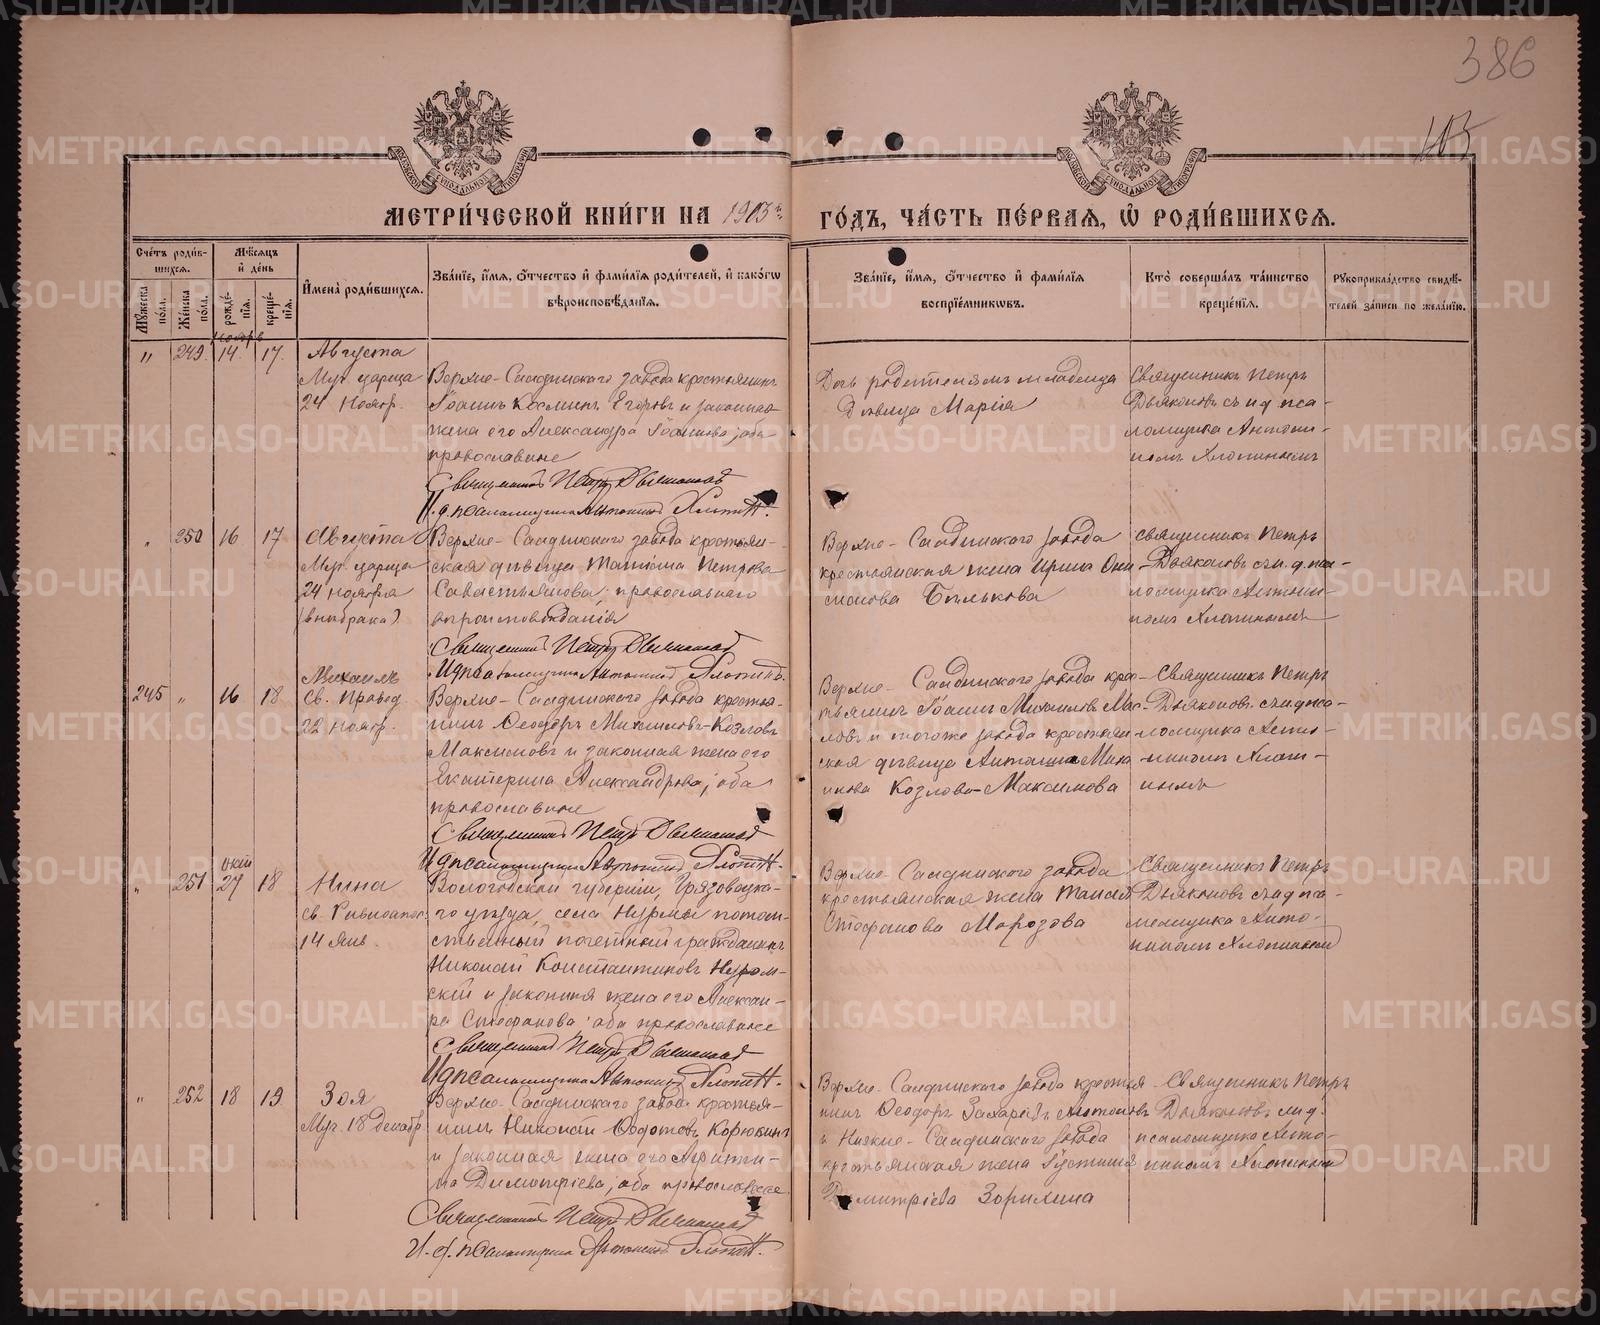 386
103
МЕТРИ́ЧЕСКОЙ КНИ́ГИ НА 1903й ГО́ДЪ, ЧА́СТЬ ПЕ́РВАѦ, Ѽ РОДИ́ВШИХСѦ.
Сче́тъ роди́в-
шихсѧ.
Мѣ́сѧцъ
и҆ де́нь
Мꙋ́жеска по́ла.
Же́нска по́ла.
рожде́-нїѧ.
креще́-нїѧ.
И҆мена̀ роди́вшихсѧ.
Зва́нїе, и҆́мѧ, ѻ҆́тчество и҆ фами́лїѧ роди́телей, и҆ како́гѡ
вѣроисповѣ́данїѧ.
Зва́нїе, и҆́мѧ, ѻ҆́тчество и҆ фами́лїѧ
воспрїе́мникѡвъ.
Кто̀ соверша́лъ та́инство
креще́нїѧ.
Рꙋкоприкла́дство свидѣ́-
телей за́писи по жела́нїю.
Ноябр.
" 249. 14. 17. Августа
Муч. царица
24 Ноябр.
Верхне-Салдинского завода крестьянинъ
Іоаннъ Косминъ Егоровъ и законная
жена его Александра Іоаннова, оба
православные
Священникъ Петръ Дьяконовъ
И. д. псаломщика Антонинъ Хлопинъ.
Дочь родителямъ младенца
Дѣвица Марія
Священникъ Петръ
Дьяконовъ съ и д пса-
ломщика Антони-
номъ Хлопинымъ
" 250 16 17 Августа
Муч. царица
24 Ноября
(внѣбрака)
Верхне-Салдинского завода крестьян-
ская дѣвица Татіана Петрова
Савастьянова, православнаго
вѣроисповѣданія
Священникъ Петръ Дьяконовъ
И д псаломщика Антонинъ Хлопинъ.
Верхне-Салдинского завода
крестьянская жена Ирина Они-
симова Бѣлькова
священникъ Петръ
Дьяконовъ съ и. д. пса-
ломщика Антони-
номъ Хлопинымъ
245 " 16 18 Михаилъ
Св. Правед.
22 Ноябр.
Верхне-Салдинского завода крестья-
нинъ Ѳеодоръ Михаиловъ Козловъ
Максимовъ и законная жена его
Екатерина Александрова, оба
православные
Священникъ Петръ Дьяконовъ
И д псаломщика Антонинъ Хлопинъ.
Верхне-Салдинского завода кре-
стьянинъ Іоаннъ Михаиловъ Мас-
ловъ и тогоже завода крестьян-
ская дѣвица
Козлова-Максимова
Священникъ Петръ
Дьяконовъ съ и д пса-
ломщика Анто-
ниномъ Хлопи-
нымъ
Окт.
" 251 27 18 Нина
св. Равноапос.
14 Янв.
Вологодской губерніи, Грязовецка-
го уѣзда, села Нурмы потом-
ственный почетный гражданинъ
Николай Константиновъ Нуром-
скій и законная жена его Алексан-
ра Стефанова, оба православные
Священникъ Петръ Дьяконовъ
И д псаломщика Антонинъ Хлопинъ.
Верхне-Салдинского завода
крестьянская жена Таисія
Стефанова Морозова
Священникъ Петръ
Дьяконовъ съ и д пса-
ломщика Анто-
ниномъ Хлопинымъ
" 252 18 19 Зоя
Муч. 18 Декабр
Верхне-Салдинского завода крестья-
нинъ Николай Ѳедотовъ Корюкинъ
и законная жена его Агриппи-
на Димитріева, оба православные
Священникъ Петръ Дьяконовъ
И. д. псаломщика Антонинъ Хлопинъ.
Верхне-Салдинского завода крестья-
нинъ Ѳеодоръ Захаріевъ
и Нижне-Салдинского завода
крестьянская жена Іустинія
Димитріева Зорихина
Священникъ Петръ
Дьяконовъ съ и д.
псаломщика Анто-
ниномъ Хлопинымъ
METRIKI.GASO-URAL.RU